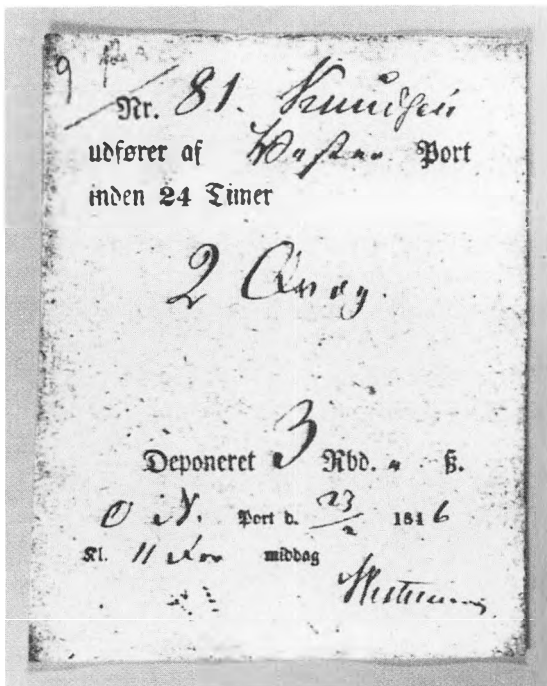 9
Nr. 81. Knudsen
udfører af Vester Port
inden 24 Timer
2 Qvæg.
Deponeret 3 Rbd. „ ß.
Port d. 23/2 1846
Kl. 11 For middag